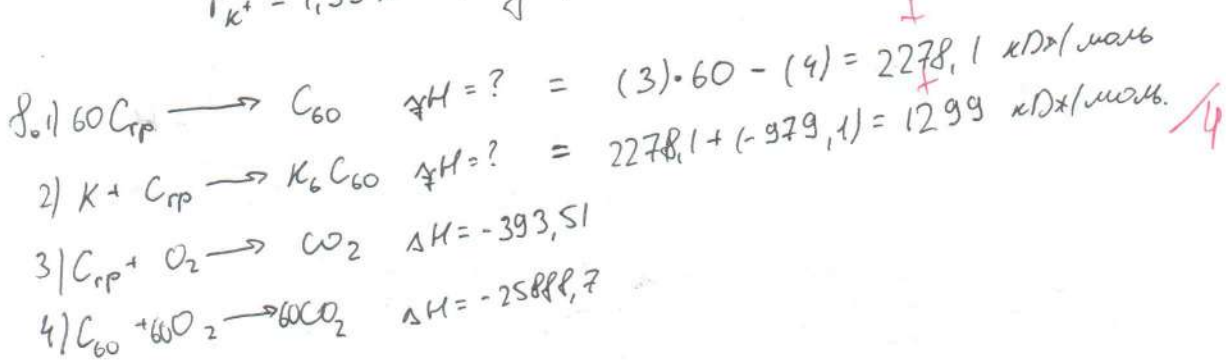 r K⁺ = 1,33
8.1) 60Cгр → C₆₀ ₓH = ? = (3)·60 - (4) = 2278,1 кДж/моль
2) K + Cгр → K₆C₆₀ ₓH = ? = 2278,1 + (-979,1) = 1299 кДж/моль.
3) Cгр + O₂ → CO₂ ΔH = -393,51
4) C₆₀ + 60O₂ → 60CO₂ ΔH = -25888,7
/4